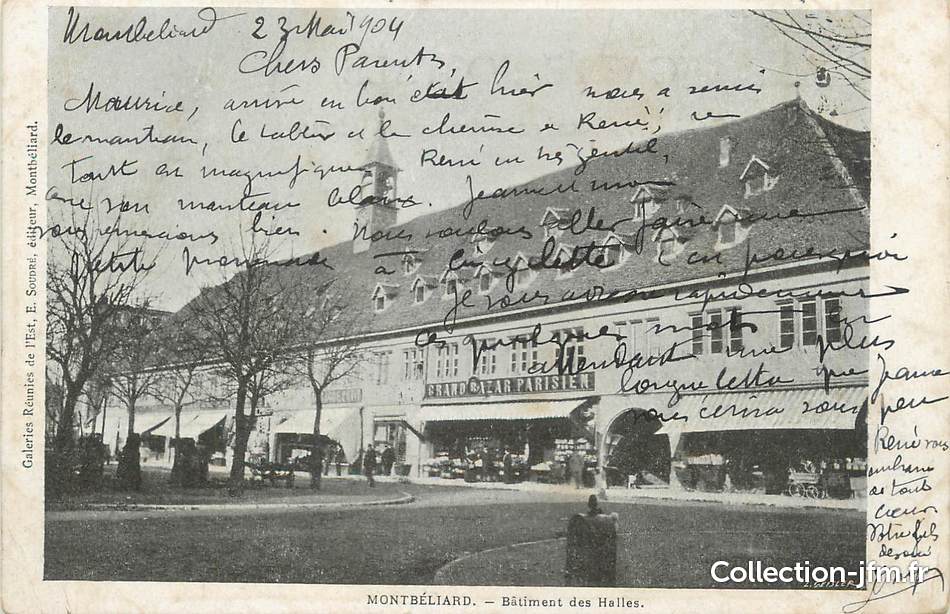 Montbéliard 23 Mai 1904
Chers Parents,
Maurice, arrivé en bon état hier nous a remis
le manteau, le tablier et la chemise à René,
tout est magnifique, René est très gentil,
avec son manteau blanc. Jeanne et moi
vous remercions bien. Nous voulons aller faire une
petite promenade à bicyclette c'est pourquoi
je vous adresse rapidement
ces quelques mots en
attendant une plus
longue lettre que Jeanne
vous écrira sous peu
René vous
embrasse
de tout
coeur
Votre fils
dévoué
Galeries Réunies de l'Est, E. Soudre, éditeur, Montbéliard.
GRAND BAZAR PARISIEN
MONTBÉLIARD. – Bâtiment des Halles.
Collection-jfm.fr